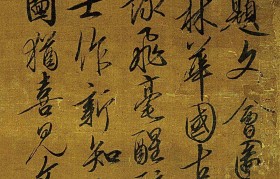 題文會圖
林華國古
詠飛毫醒
士作新知
圖猶喜見